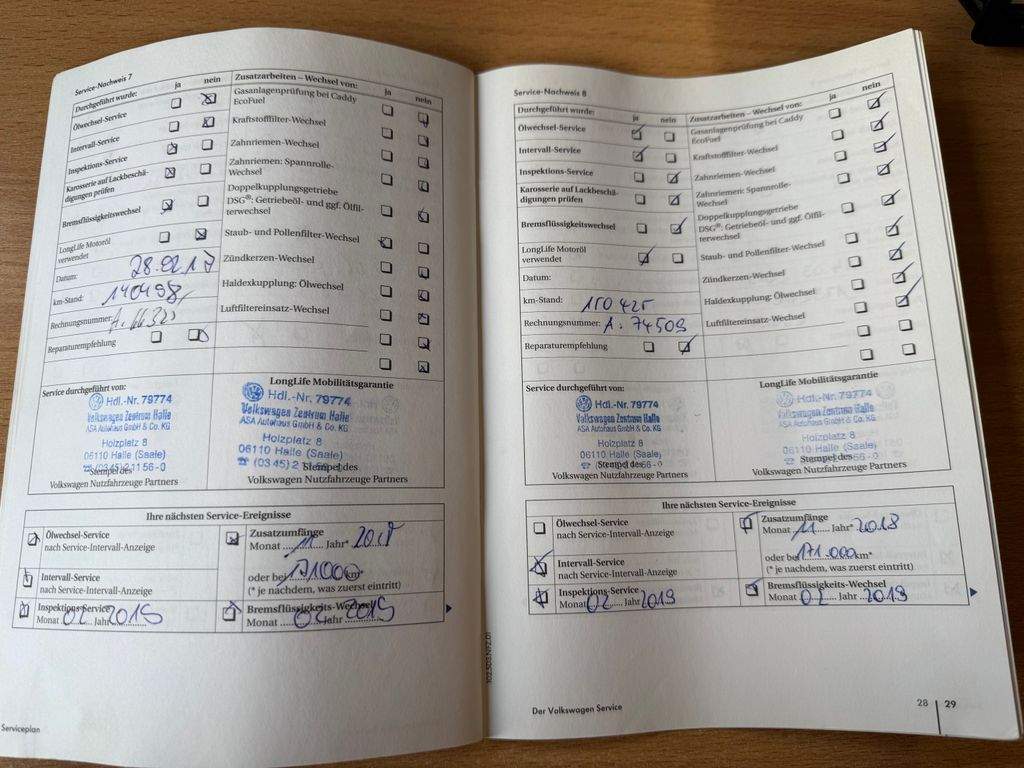 Service-Nachweis 7
Durchgeführt wurde: ja nein
Ölwechsel-Service
Intervall-Service
Inspektions-Service
Karosserie auf Lackbeschä-
digungen prüfen
Bremsflüssigkeitswechsel
LongLife Motoröl
verwendet
Datum: 28.02.17
km-Stand: 140498
Rechnungsnummer:
Reparaturempfehlung
Zusatzarbeiten – Wechsel von: ja nein
Gasanlagenprüfung bei Caddy
EcoFuel
Kraftstofffilter-Wechsel
Zahnriemen-Wechsel
Zahnriemen: Spannrolle-
Wechsel
Doppelkupplungsgetriebe
DSG®: Getriebeöl- und ggf. Ölfil-
terwechsel
Staub- und Pollenfilter-Wechsel
Zündkerzen-Wechsel
Haldexkupplung: Ölwechsel
Luftfiltereinsatz-Wechsel
Service durchgeführt von:
Hdl.-Nr. 79774
Volkswagen Zentrum Halle
ASA Autohaus GmbH & Co. KG
Holzplatz 8
06110 Halle (Saale)
☎ (0345) 21156-0
Stempel des
Volkswagen Nutzfahrzeuge Partners
LongLife Mobilitätsgarantie
Hdl.-Nr. 79774
Volkswagen Zentrum Halle
ASA Autohaus GmbH & Co. KG
Holzplatz 8
06110 Halle (Saale)
Stempel des
Volkswagen Nutzfahrzeuge Partners
Ihre nächsten Service-Ereignisse
Ölwechsel-Service
nach Service-Intervall-Anzeige
Intervall-Service
nach Service-Intervall-Anzeige
Inspektions-Service
Monat 02 Jahr 2019
Zusatzumfänge
Monat 11 Jahr* 2018
oder bei 171000 km*
(* je nachdem, was zuerst eintritt)
Bremsflüssigkeits-Wechsel
Monat 02 Jahr 2019
Serviceplan
Service-Nachweis 8
Durchgeführt wurde: ja nein
Ölwechsel-Service
Intervall-Service
Inspektions-Service
Karosserie auf Lackbeschä-
digungen prüfen
Bremsflüssigkeitswechsel
LongLife Motoröl
verwendet
Datum:
km-Stand: 150425
Rechnungsnummer: A. 74509
Reparaturempfehlung
Zusatzarbeiten – Wechsel von: ja nein
Gasanlagenprüfung bei Caddy
EcoFuel
Kraftstofffilter-Wechsel
Zahnriemen-Wechsel
Zahnriemen: Spannrolle-
Wechsel
Doppelkupplungsgetriebe
DSG®: Getriebeöl- und ggf. Ölfil-
terwechsel
Staub- und Pollenfilter-Wechsel
Zündkerzen-Wechsel
Haldexkupplung: Ölwechsel
Luftfiltereinsatz-Wechsel
Service durchgeführt von:
Hdl.-Nr. 79774
Volkswagen Zentrum Halle
ASA Autohaus GmbH & Co. KG
Holzplatz 8
06110 Halle (Saale)
Stempel des
Volkswagen Nutzfahrzeuge Partners
LongLife Mobilitätsgarantie
Hdl.-Nr. 79774
Volkswagen Zentrum Halle
ASA Autohaus GmbH & Co. KG
Holzplatz 8
06110 Halle (Saale)
Stempel des
Volkswagen Nutzfahrzeuge Partners
Ihre nächsten Service-Ereignisse
Ölwechsel-Service
nach Service-Intervall-Anzeige
Intervall-Service
nach Service-Intervall-Anzeige
Inspektions-Service
Monat 02 Jahr 2019
Zusatzumfänge
Monat 11 Jahr* 2018
oder bei 171.000 km*
(* je nachdem, was zuerst eintritt)
Bremsflüssigkeits-Wechsel
Monat 02 Jahr 2019
Der Volkswagen Service
28 | 29